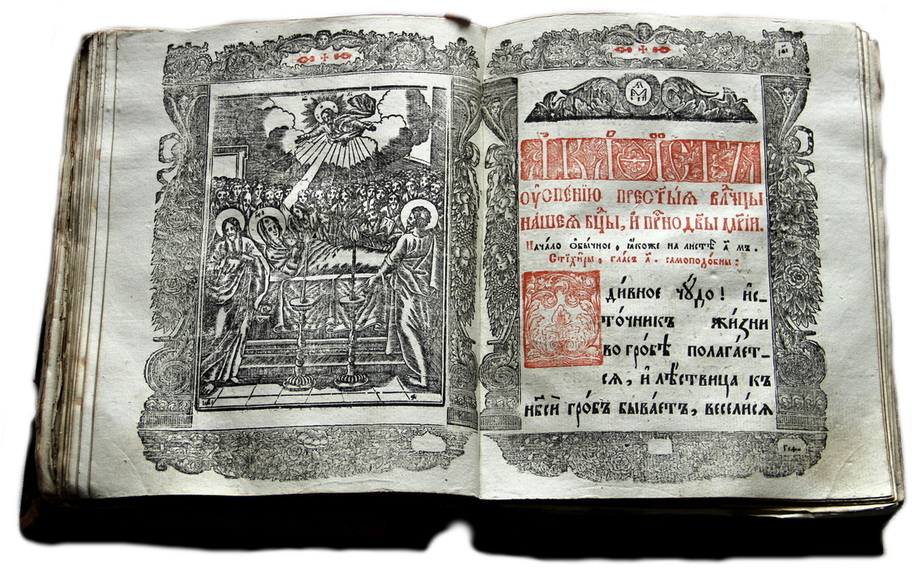 АКАѲІСТЪ
оуспенїю престы́ѧ влⷣчцы
нашеѧ бцы, и҆ прⷭ҇но дв҃ы мр҃їи.
Начало ѻбычное, ꙗкоже на листѣ а҃ мъ.
Стїхи́ры, гласъ а҃. самоподобны:
дивное чꙋдо! и҆с_
то́чникъ жи́зни
во гробѣ полага́ет_
сѧ, и҆ лѣствица къ
нб҃си гробъ быва́етъ, веселисѧ